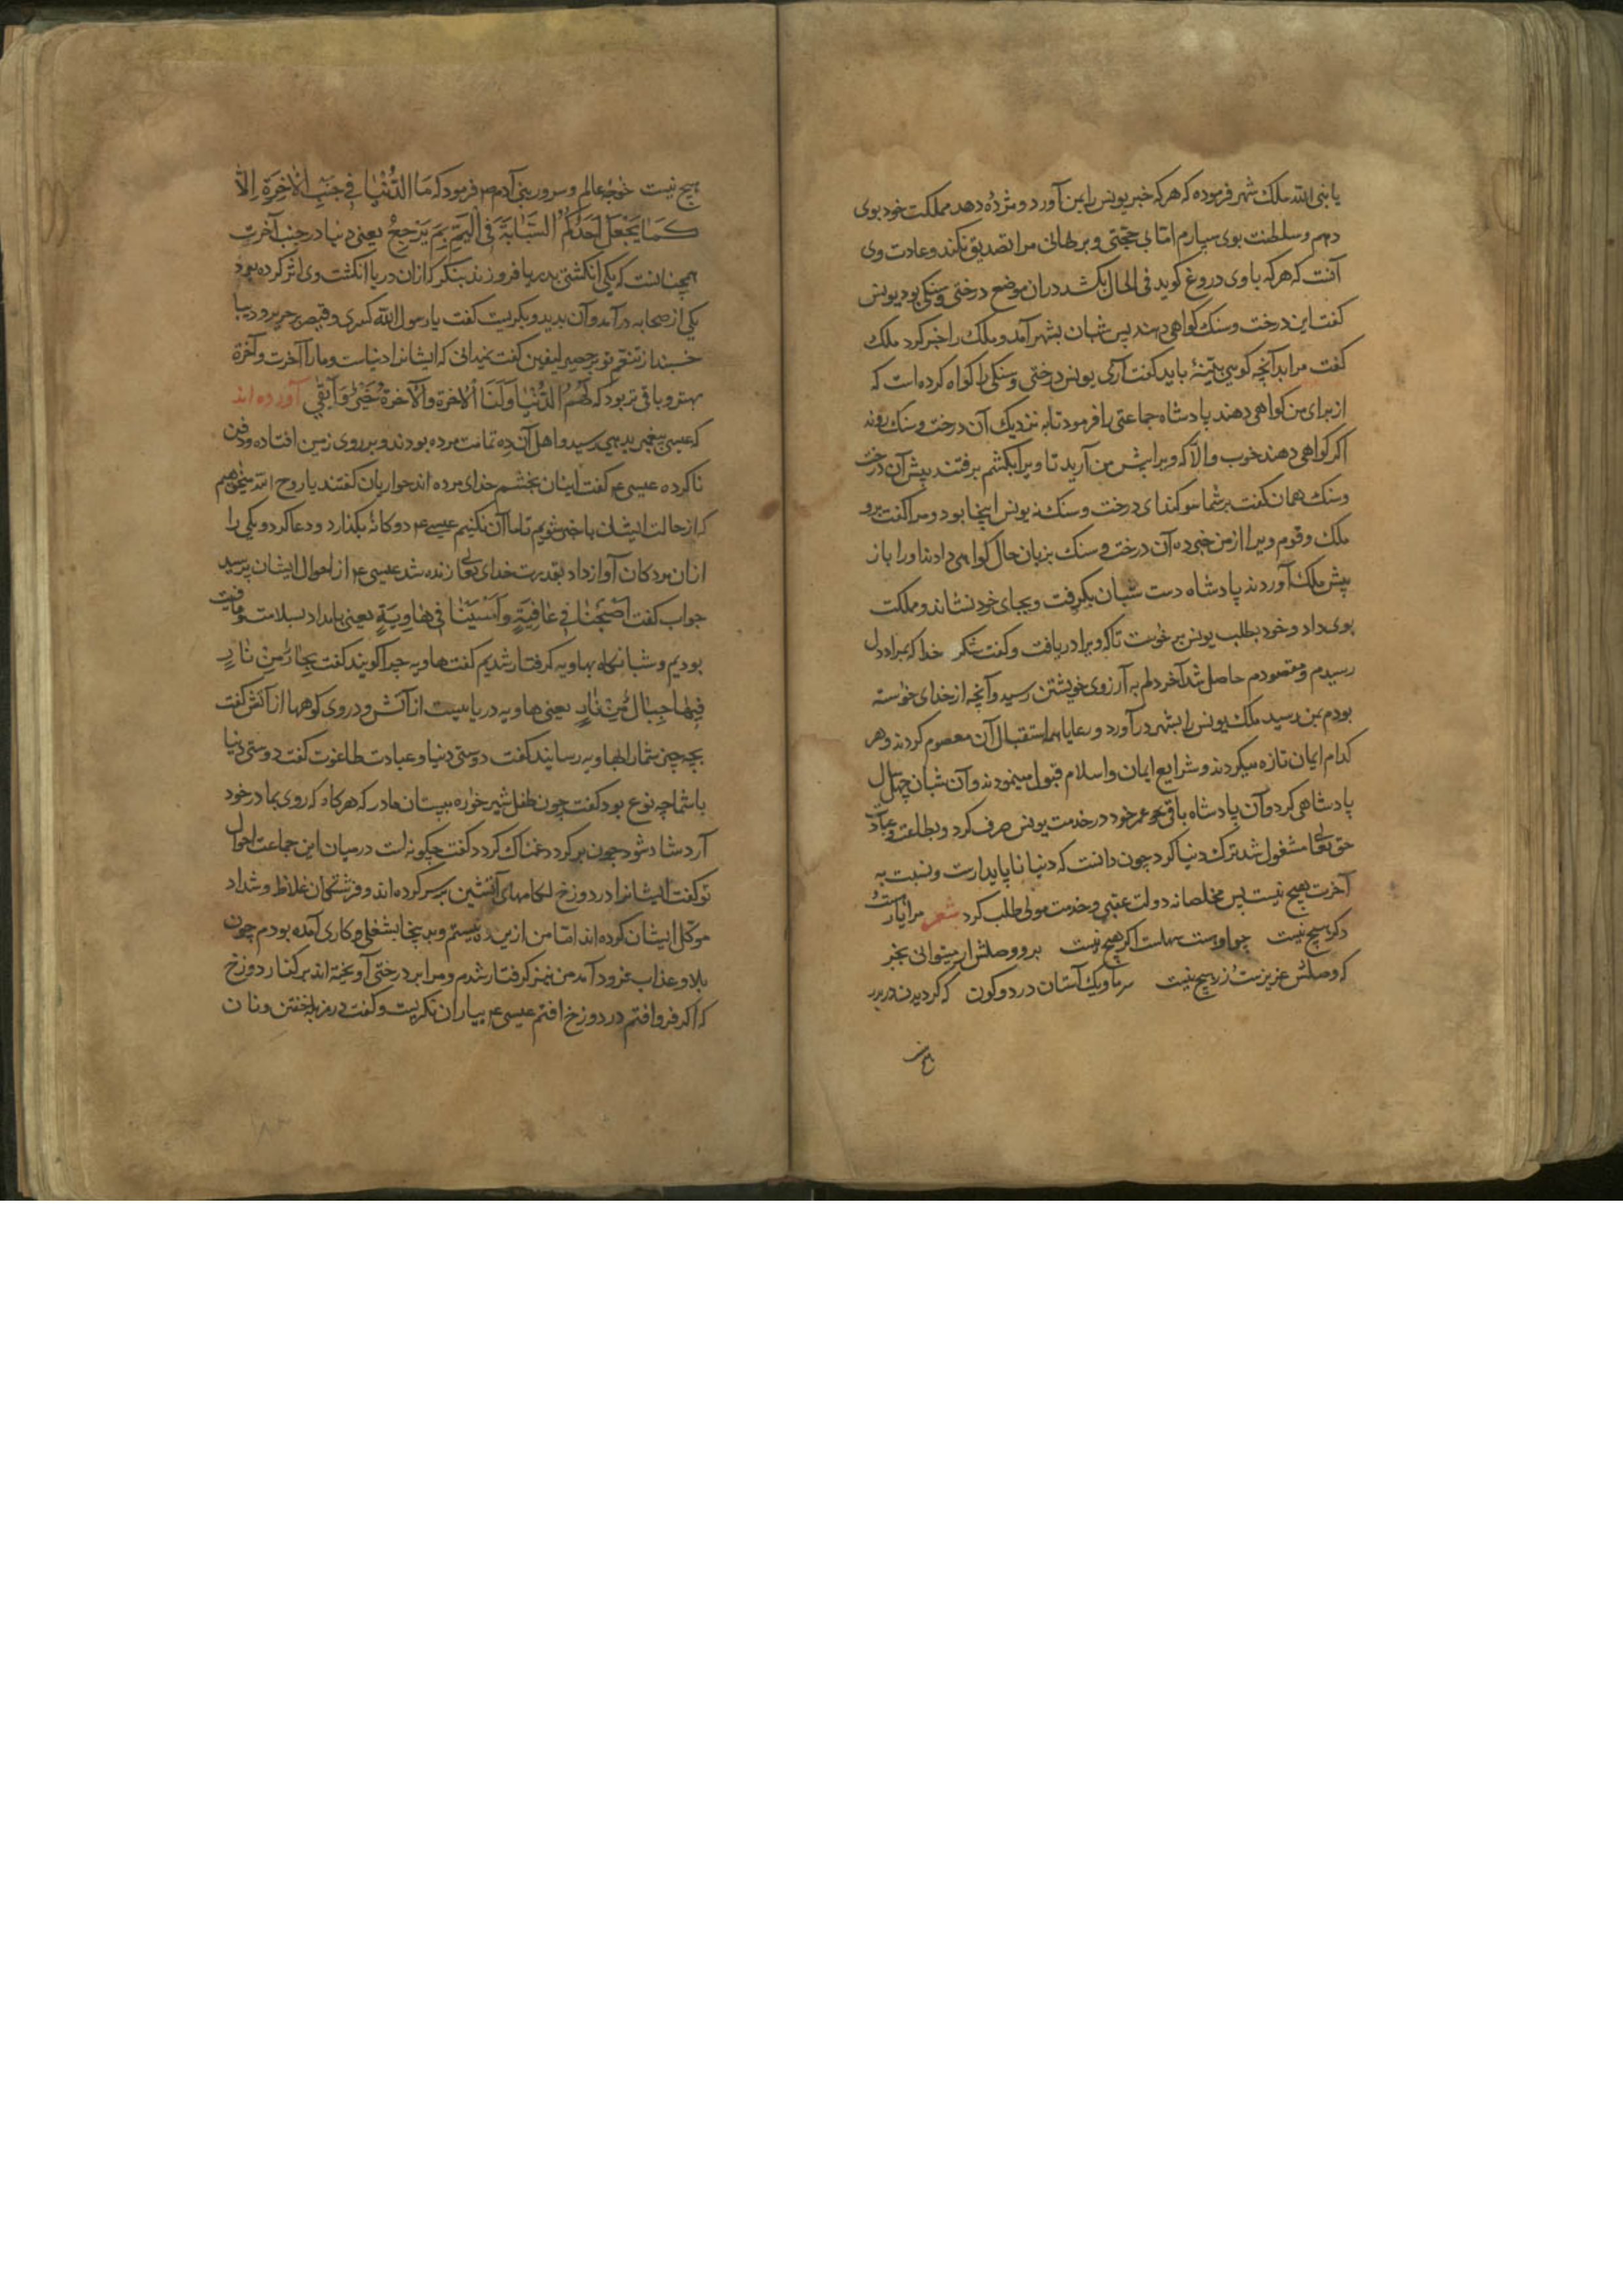 یا نبی الله ملک شهر فرموده که هرکه خبر یونس را بمن آورد و مژده دهد مملکت خود بوی
دهم و سلطنت بوی سپارم اما بی حجتی و برهانی مرا تصدیق نکند و عادت وی
آنست که هرکه با وی دروغ کوید فی الحال بکشد دران موضع درختی و سنکی بود یونس
کفت این درخت و سنک کواهی دهند پس شبان بشهر آمد و ملک را خبر کرد ملک
کفت مرا بدآنچه کویی بینهٔ باید کفت آری یونس درختی و سنکی را کواه کرده است که
از برای من کواهی دهند پادشاه جماعتی را فرمود تا به نزدیک آن درخت و سنک روند
اکر کواهی دهند خوب والّا که ویرا پیش من آرید تا ویرا بکشم برفتند پیش آن درخت
و سنک همان کفت بر شما سوکند ای درخت و سنک نه یونس اینجا بود و مرا کفت برو
ملک و قوم ویرا از من خبر ده آن درخت و سنک بزبان حال کواهی دادند اورا باز
پیش ملک آوردند پادشاه دست شبان بکرفت و بجای خود نشاند و مملکت
بوی داد و خود بطلب یونس برخواست تا که ویرا دریافت و کفت شکر خدا که بمراد دل
رسیدم و مقصودم حاصل شد آخر دلم به آرزوی خویشتن رسید وآنچه از خدای خواسته
بودم بمن رسید ملک یونس را بشهر درآورد و رعایا همه استقبال آن معصوم کردند و هر
کدام ایمان تازه میکردند و شرایع ایمان و اسلام قبول مینمودند و آن شبان چهل سال
پادشاهی کرد و آن پادشاه باقی عمر خود در خدمت یونس صرف کرد و بطاعت و عبادت
حق تعالی مشغول شد ترک دنیا کرد چون دانست که دنیا ناپایدارست و نسبت به
آخرت هیچ نیست پس مخلصانه دولت عقبی و خدمت مولی طلب کرد شعر مرا یارست و
دکر هیچ نیست چو اوست سهلست اکر هیچ نیست برو وصلش ار میتوانی بخر
که وصلش عزیزست زر هیچ نیست سر ما و یک آستان در دو کون که کردیدن در بدر
هیچ نیست خواجه عالم و سرور بنی آدم ص فرمود که مَا الدُّنْیَا فِی جَنْبِ الْآخِرَةِ إِلَّا
کَمَا یَجْعَلُ أَحَدُکُمُ السَّبَّابَةَ فِی الْیَمِّ بِمَ یَرْجِعُ یعنی دنیا در جنب آخرت
همچنانست که یکی انکشتی بدریا فرو زند بنکر که از آن دریا انکشت وی اثر کرده بود
یکی از صحابه درآمد و آن بدید و بکریست کفت یا رسول الله کسری و قیصر بر حریر و دیبا
خسبند از تنعم تو بر حصیر لیفین کفت نمیدانی که ایشانرا دنیاست و مارا آخرت و آخرة
بهتر و باقی تر بود که لَهُمُ الدُّنْیَا وَلَنَا الْآخِرَة وَالْآخِرَةُ خَیْرٌ وَأَبْقَی آورده اند
که عیسی پیغمبر بدیهی رسید و اهل آن ده تمامت مرده بودند و بر روی زمین افتاده و دفن
ناکرده عیسی ع کفت اینان بخشم خدای مرده اند حواریان کفتند یا روح الله میخواهیم
که از حالت ایشان باخبر شویم تا ما آن نکنیم عیسی ع دوکانهٔ بکذارد و دعا کرد و یکی را
از آن مردکان آواز داد بقدرت خدای تعالی زنده شد عیسی ع از احوال ایشان پرسید
جواب کفت أَصْبَحْنَا فِی عَافِیَةٍ وَأَمْسَیْنَا فِی هَاوِیَةٍ یعنی بامداد بسلامت و عافیت
بودیم و شبانکاه بهاویه کرفتار شدیم کفت هاویه چرا کویند کفت بِحَارٌ مِنْ نَارٍ
فِیهَا جِبَالٌ مِنْ نَارٍ یعنی هاویه دریاییست از آتش و در وی کوهها از آتش کفت
بچه چیز شما را بهاویه رسانید کفت دوستی دنیا و عبادت طاغوت کفت دوستی دنیا
با شما چه نوع بود کفت چون طفل شیرخواره بپستان مادر که هرکاه که روی بمادر خود
آرد شاد شود چون برکردد غمناک کردد کفت چکونه است در میان این جماعت احوال
تو کفت ایشانرا در دوزخ لکامهای آتشین بر سر کرده اند و فرشتکان غلاظ و شداد
موکل ایشان کرده اند اما من از این ده نیستم و بدینجا بشغلی و کاری آمده بودم چون
بلا و عذاب فرود آمد من نیز کرفتار شدم و مرا بر درختی آویخته اند بر کنار دوزخ
که اکر فرو افتم در دوزخ افتم عیسی ع بیاران نکریست و کفت در مزبله خفتن و نان